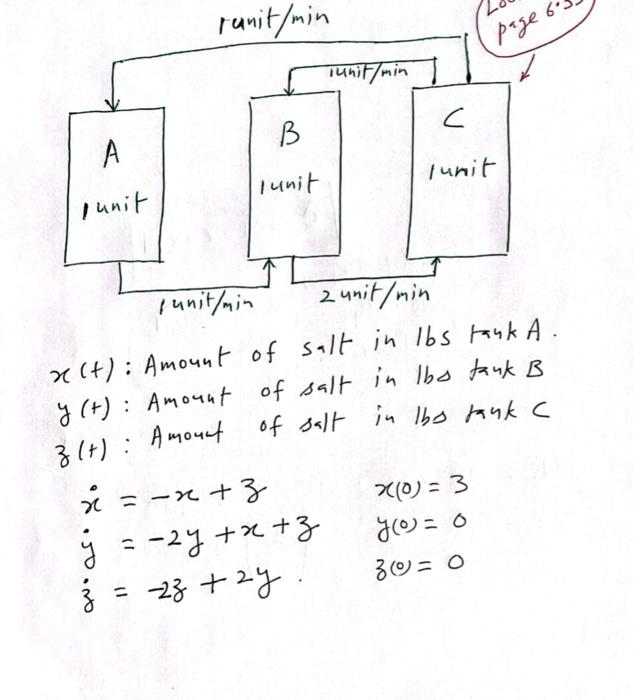 1 unit/min
page
1 unit/min
A
1 unit
B
1 unit
C
1 unit
1 unit/min
2 unit/min
x(t) : Amount of salt in lbs tank A.
y(t) : Amount of salt in lbs tank B
z(t) : Amount of salt in lbs tank C
ẋ = -x + z
x(0) = 3
ẏ = -2y + x + z
y(0) = 0
ż = -2z + 2y .
z(0) = 0